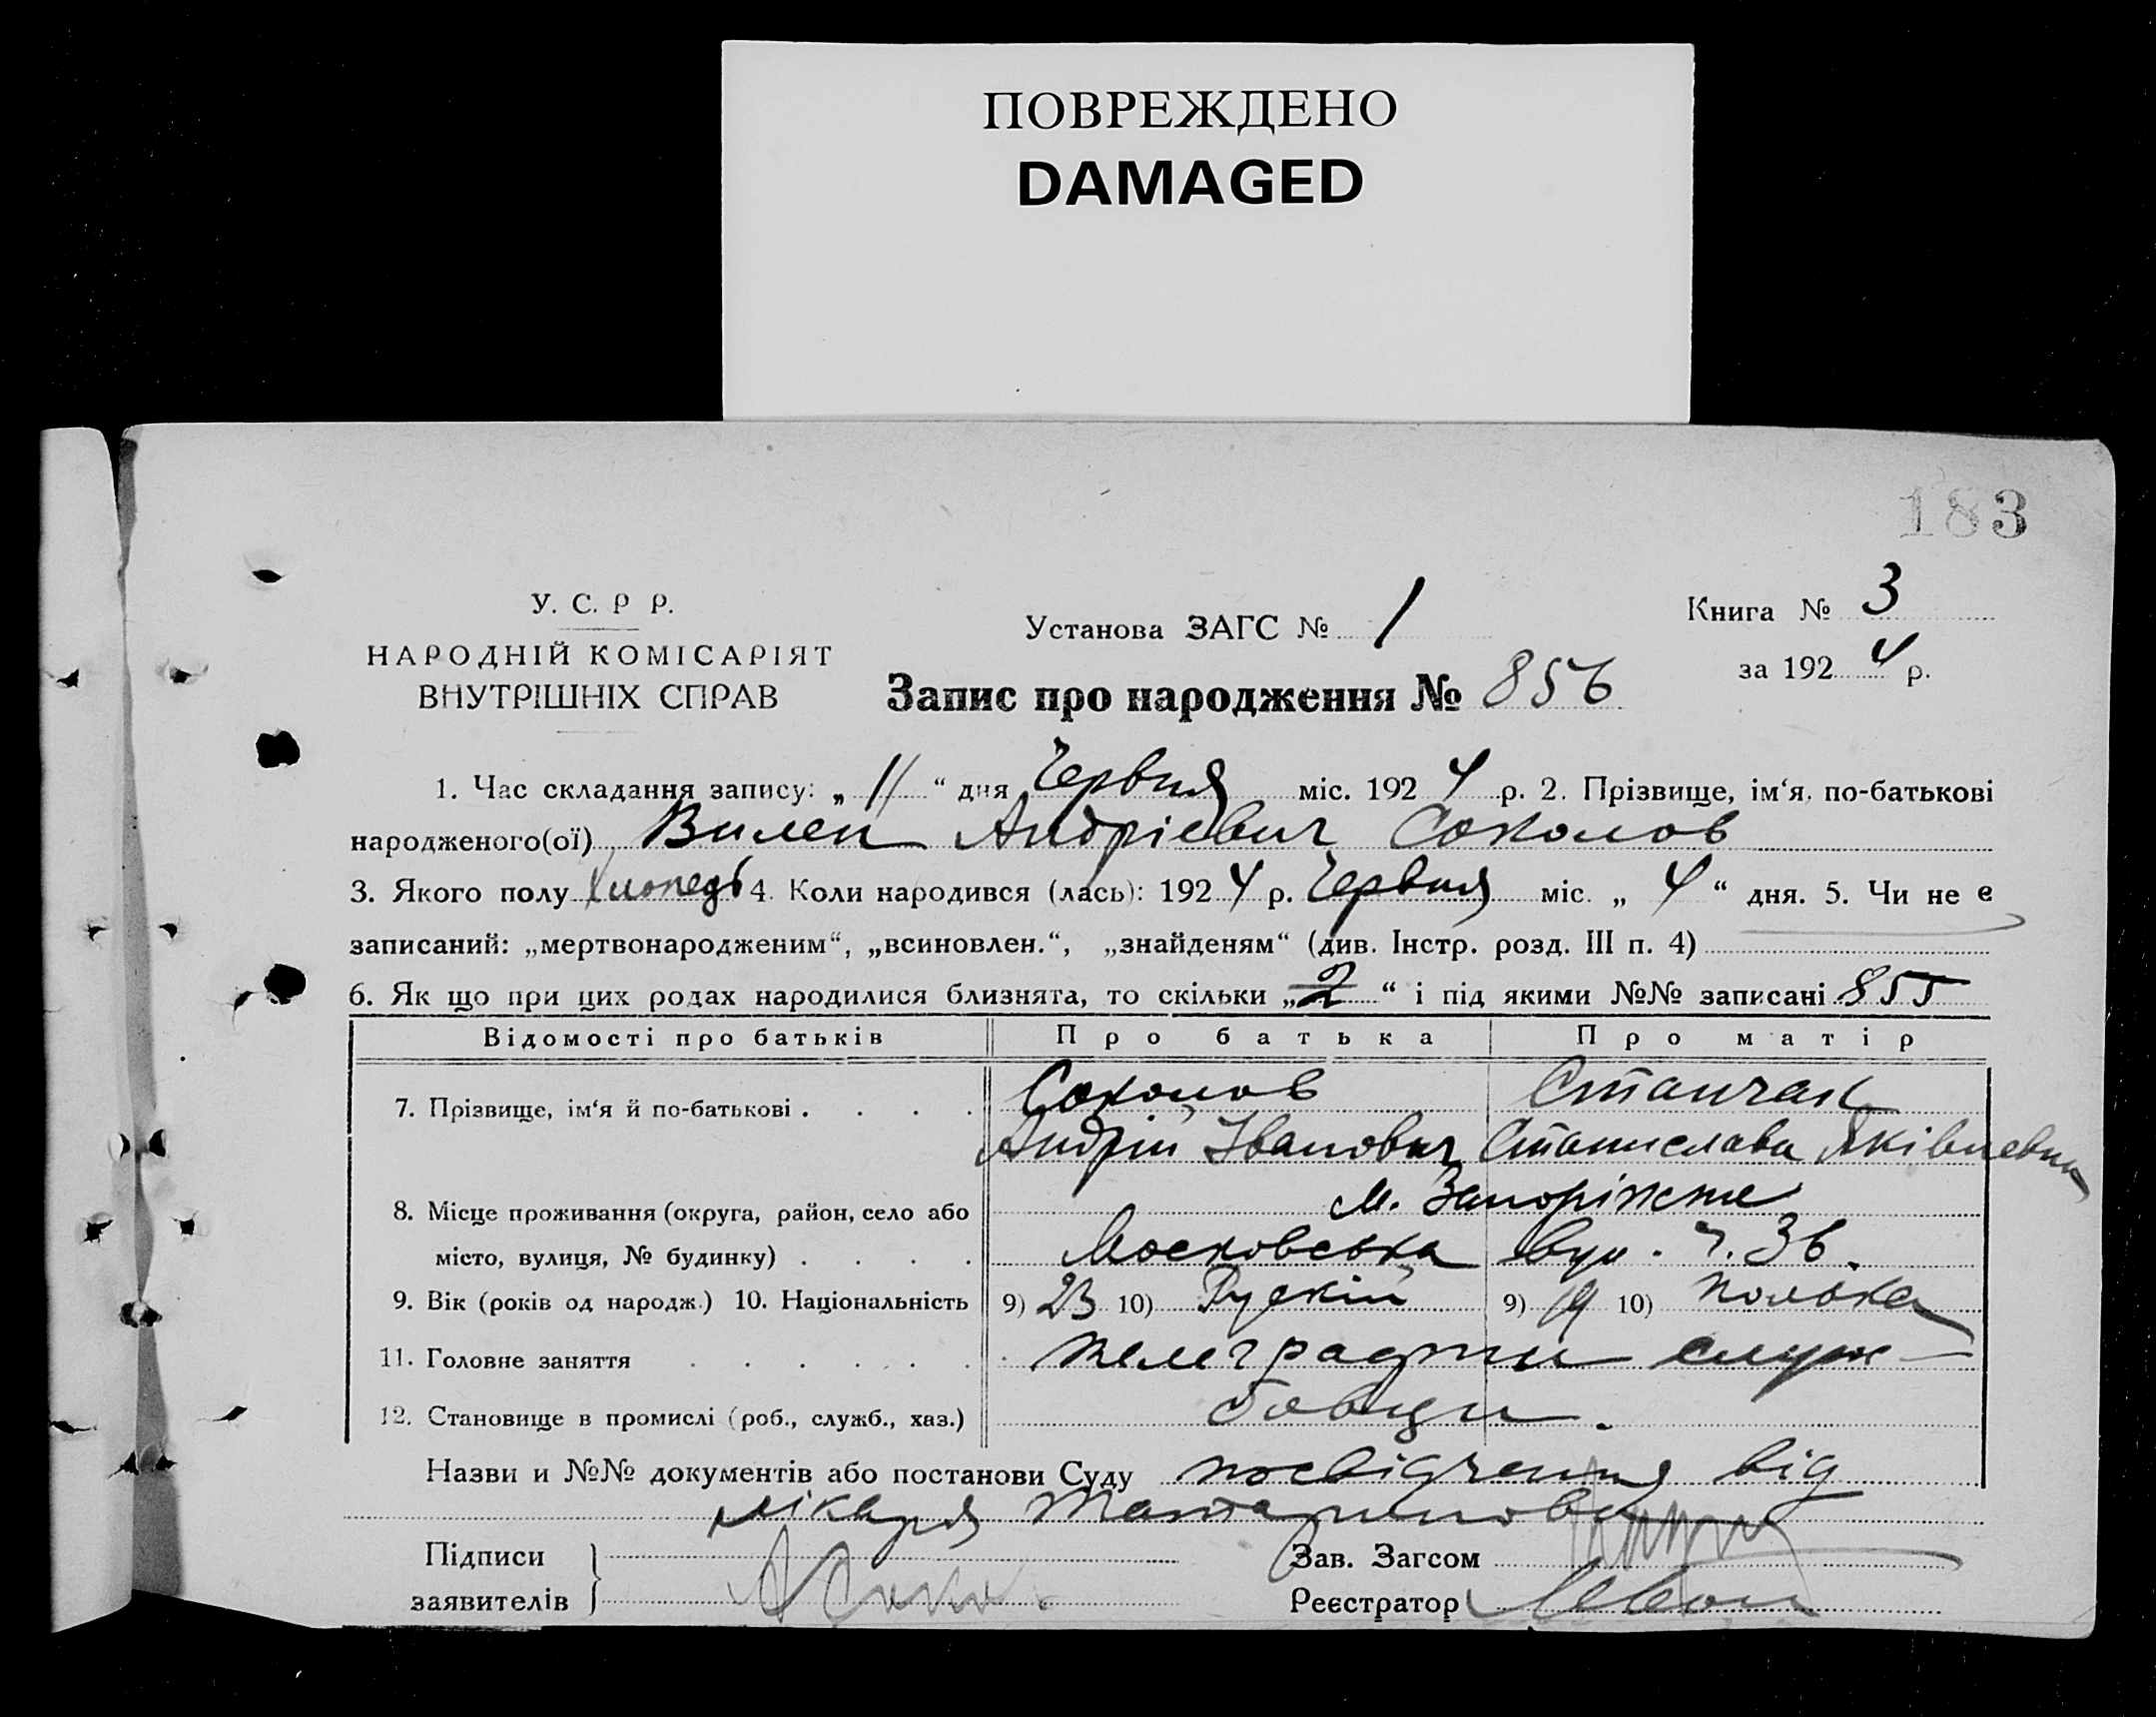 ПОВРЕЖДЕНО
DAMAGED
183
У. С. Р Р.
НАРОДНІЙ КОМІСАРІЯТ
ВНУТРІШНІХ СПРАВ
Установа ЗАГС № 1
Книга № 3
за 1924 р.
Запис про народження № 856
1. Час складання запису: „ 11 “ дня Червня міс. 1924 р. 2. Прізвище, ім‘я, по-батькові
народженого(ої) Вилен Андріевич Соколов
3. Якого полу Хлопець 4. Коли народився (лась): 1924 р. Червня міс. „ 4 “ дня. 5. Чи не є
записаний: „мертвонародженим“, „всиновлен.“, „знайденям“ (див. Інстр. розд. III п. 4)
6. Як що при цих родах народилися близнята, то скільки „ 2 “ і під якими №№ записані 855
Відомості про батьків Про батька Про матір
7. Прізвище, ім‘я й по-батькові . . . . Соколов Станчак
Андрій Іванович Станислава Яківлевна
8. Місце проживання (округа, район, село або м. Запоріжже
місто, вулиця, № будинку) . . . . Московська вул. ч. 36.
9. Вік (років од народж.) 10. Національність 9) 23 10) Рускій 9) 19 10) полька
11. Головне заняття . . . . . . телеграфни служ-
12. Становище в промислі (роб., служб., хаз.) бовци.
Назви и №№ документів або постанови Суду посвідчення від
лікаря Татаринова
Підписи
заявителів
Зав. Загсом
Реєстратор